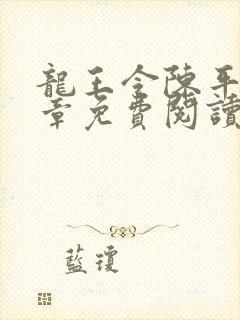 龍王令陳平
章免費閱讀
藍瓊